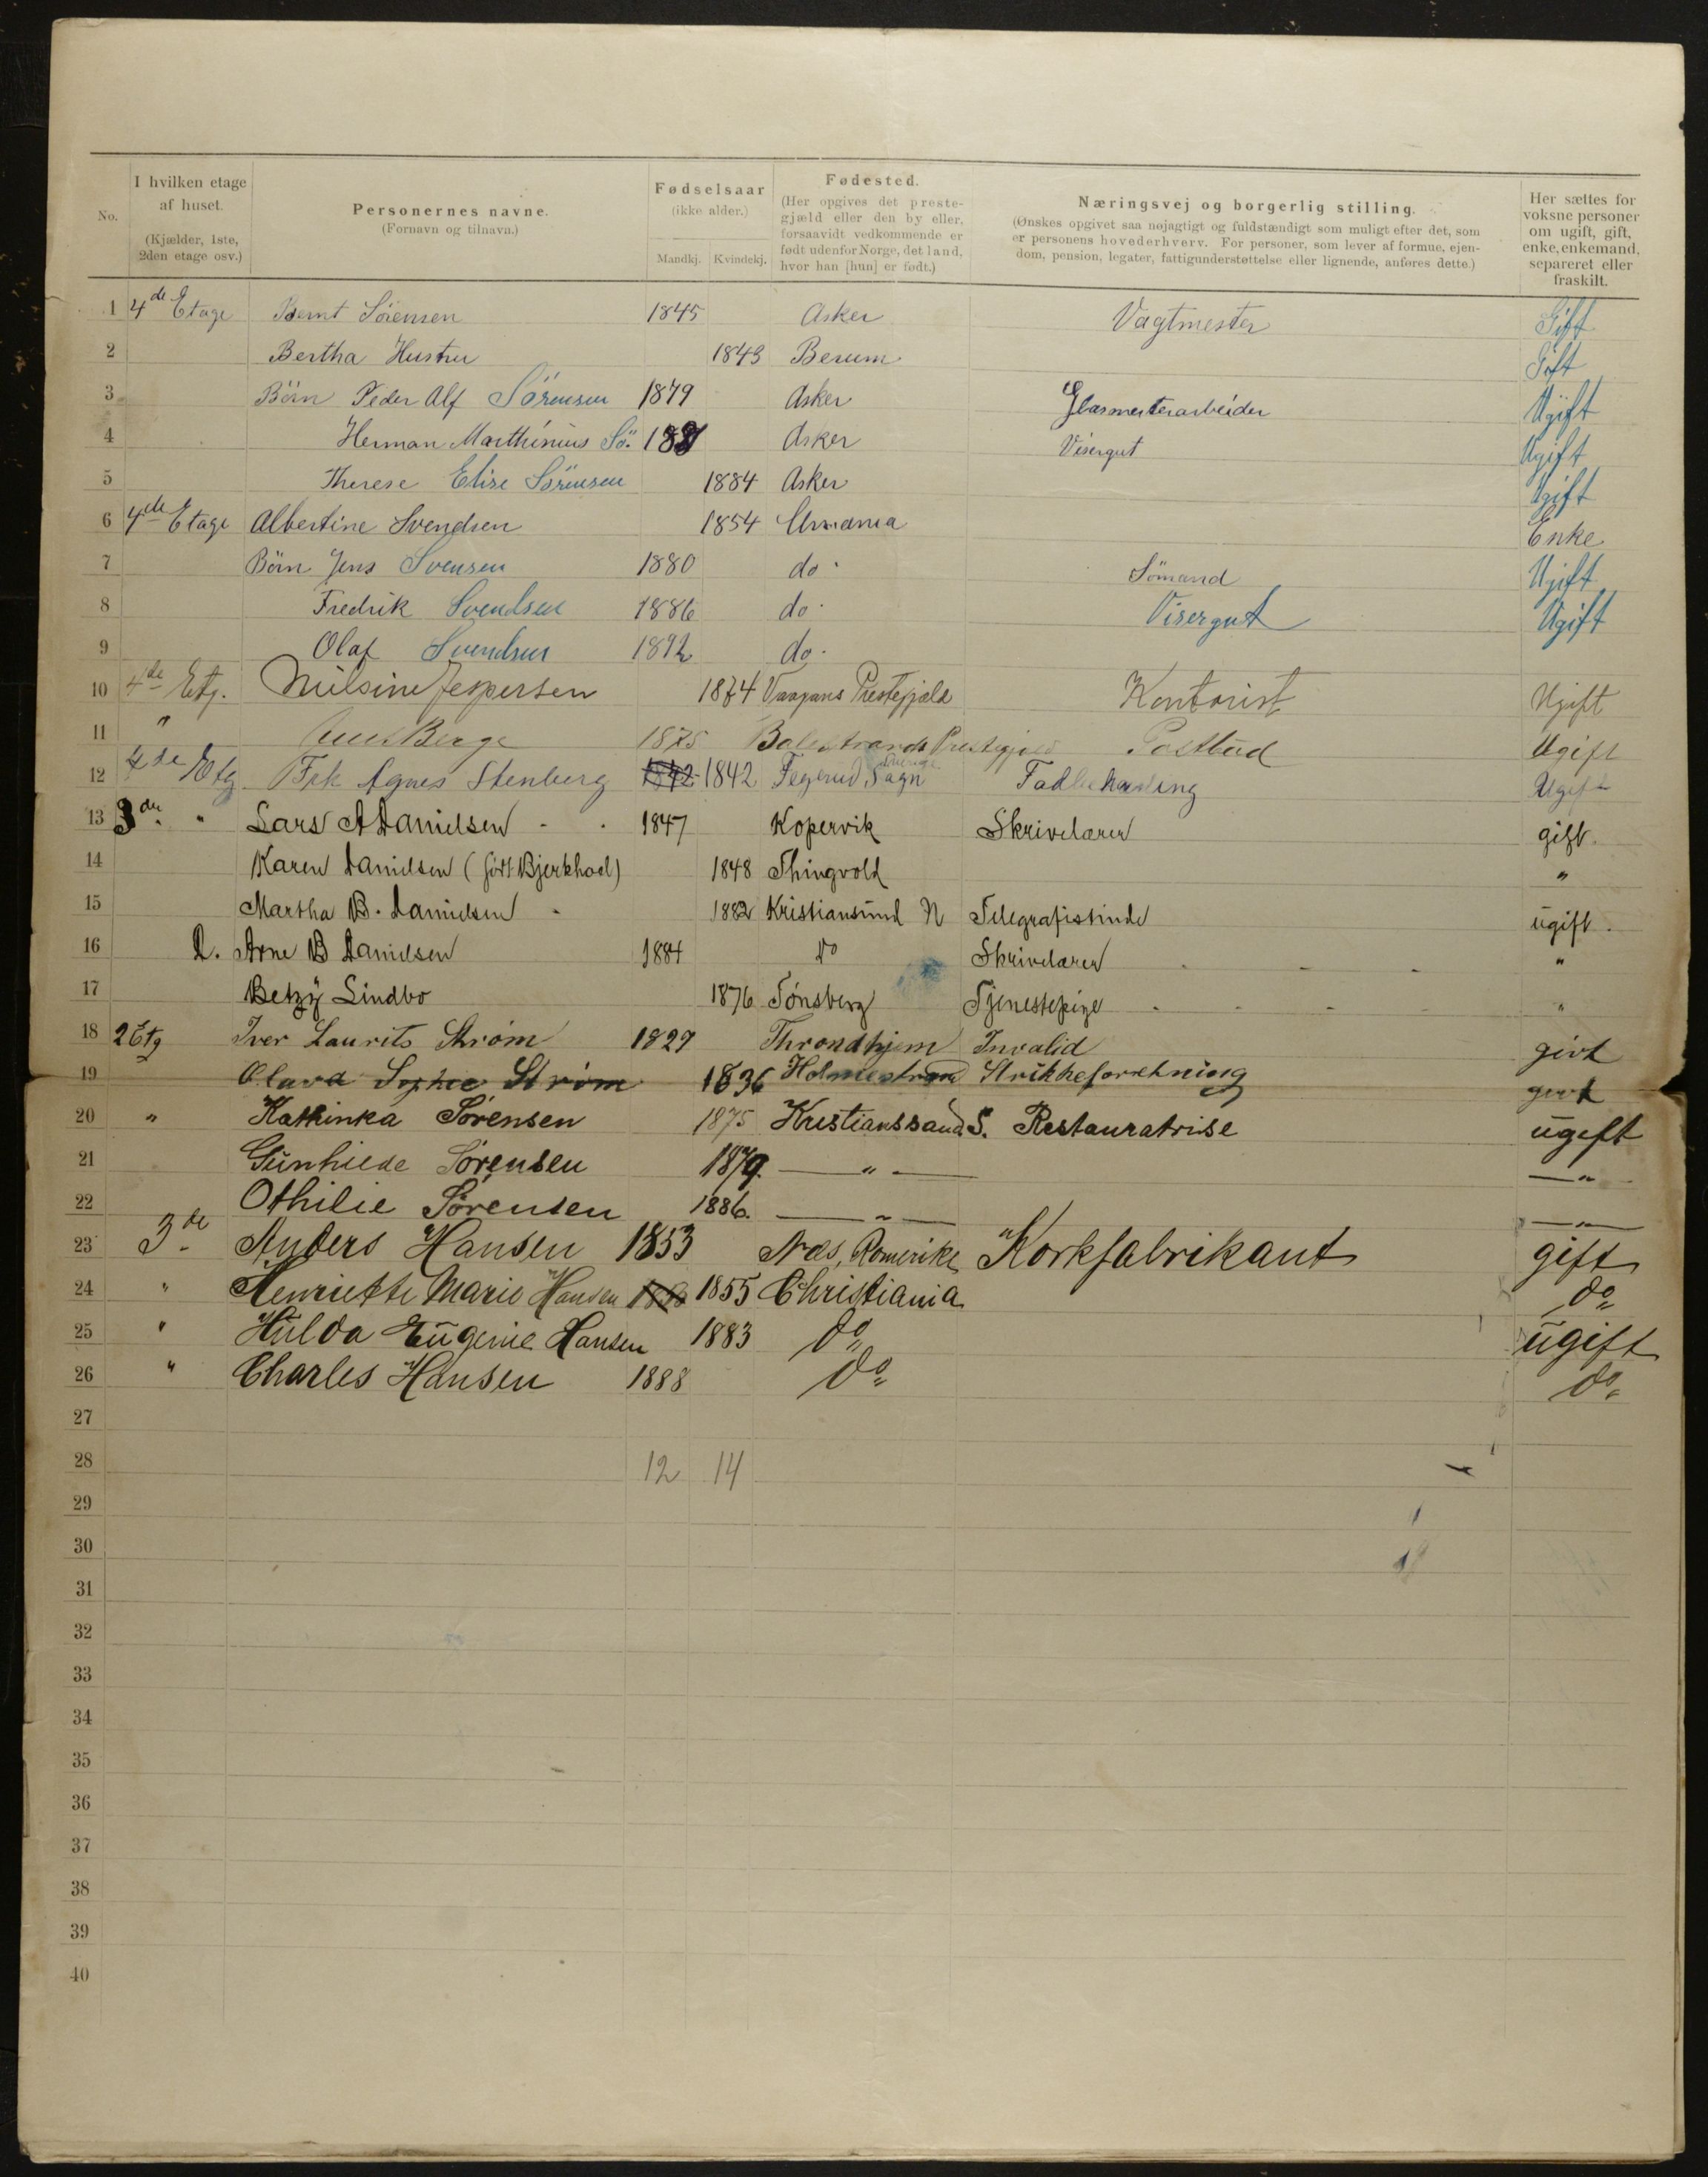 No.
I hvilken etage af huset. (Kjælder, 1ste, 2den etage osv.)
Personernes navne. (Fornavn og tilnavn.)
Fødselsaar (ikke alder.) Mandkj. Kvindekj.
Fødested. (Her opgives det prestegjæld eller den by eller, forsaavidt vedkommende er født udenfor Norge, det land, hvor han [hun] er født.)
Næringsvej og borgerlig stilling. (Ønskes opgivet saa nøjagtigt og fuldstændigt som muligt efter det, som er personens hovederhverv. For personer, som lever af formue, ejendom, pension, legater, fattigunderstøttelse eller lignende, anføres dette.)
Her sættes for voksne personer om ugift, gift, enke, enkemand, separeret eller fraskilt.
1 4de Etage Bernt Sörensen 1845 Asker Vagtmester Gift
2 Bertha Hustru 1843 Berum Gift
3 Börn Peder Alf Sörensen 1879 Asker Glasmesterarbeider Ugift
4 Herman Marthinius Sö. 1881 Asker Visergut Ugift
5 Therese Elise Sörensen 1884 Asker Ugift
6 4de Etage Albertine Svendsen 1854 Enke
7 Börn Jens Svensen 1880 do Sömand Ugift
8 Fredrik Svendsen 1886 do Visergut Ugift
9 Olaf Svendsen 1892 do
10 4de Etg. Nilsine Jespersen 1874 Vaagans Prestegjæld Kontorist Ugift
11 " Berge 1875 Balestrands Prestegjæld Postbud Ugift
12 4de Etg Frk Agnes Stenberg 1842 1842 Sogn Sverige Ugift
13 3de " Lars A Danielsen 1847 Kopervik Skrivelærer gift.
14 Karen Danielsen 1848 Thingvold "
15 Martha B. Danielsen 1882 Kristiansund N Telegrafistinde ugift.
16 D. Arne B Danielsen 1884 Do Skrivelærer "
17 Betzy Lindbo 1876 Tönsberg Tjenestepige "
18 2 Etg Iver Laurits Strøm 1829 Throndhjem Invalid givt
19 Olava Sophie Strøm 1836 Holmestrand Strikkeforretning givt
20 " Kathinka Sørensen 1875 Kristianssand S. Restauratrise ugift
21 Gunhilde Sørensen 1879. — " — — " —
22 Othilie Sørensen 1886. — " — — " —
23 3de Anders Hansen 1853 Næs, Romerike Korkfabrikant gift
24 " Henriette Marie Hansen 1855 Christiania do
25 " Hulda Eugenie Hansen 1883 do ugift
26 " Charles Hansen 1888 do do
27
28 12 14
29
30
31
32
33
34
35
36
37
38
39
40